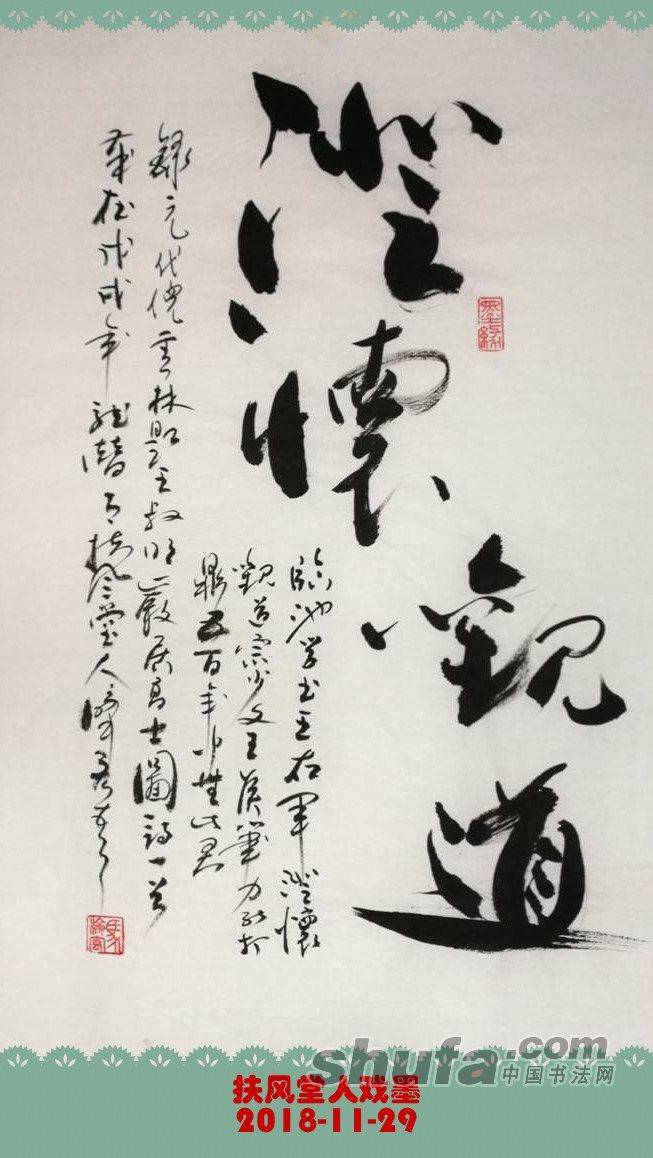 澄懷
觀道
墨缘
臨池学书王右军澄懷
觀道宗少文王侯筆力能扛
鼎五百年来無此君
錄元代倪雲林題王叔明巖居高士圖詩一首
歲在戊戌年龍潛月扶風堂人
shufa.com
中国书法网
扶风堂人戏墨
2018-11-29